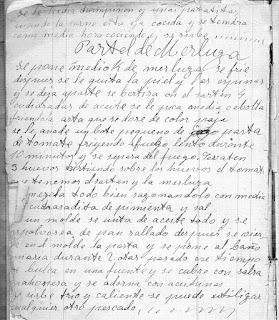 cuando la carne este ya cocida y se tendra
como media hora cociendo y
Partel de Merluza
se pone medio K de merluza se frie
despues se le quita la piel y las espinas
y se deja aparte se bertira en el sarten y
cucharadas de aceite se le pica media cebolla
friendola asta que se dore de color paja
se le añade un bote pequeno de pasta
de tomate friyendo a fuego lento durante
10 minutos y se separa del fuego. Se vaten
3 huevos bertiendo sobre los huevos el tomate
y tenemos el sarten y la merluza
mezcla todo bien sazonandolo con media
cucharadita de pimienta y sal
un molde se unta de aceite todo y se
espolvorea de pan rallado despues se vier
te en el molde la pasta y se pone al baño
maria durante 2 oras pasado ese tiempo
se buelca en una fuente y se cubre con salsa
mahonesa y se adorna con aceitunas
se sirbe frio y caliente se puede utilizar
cualquier otro pescado